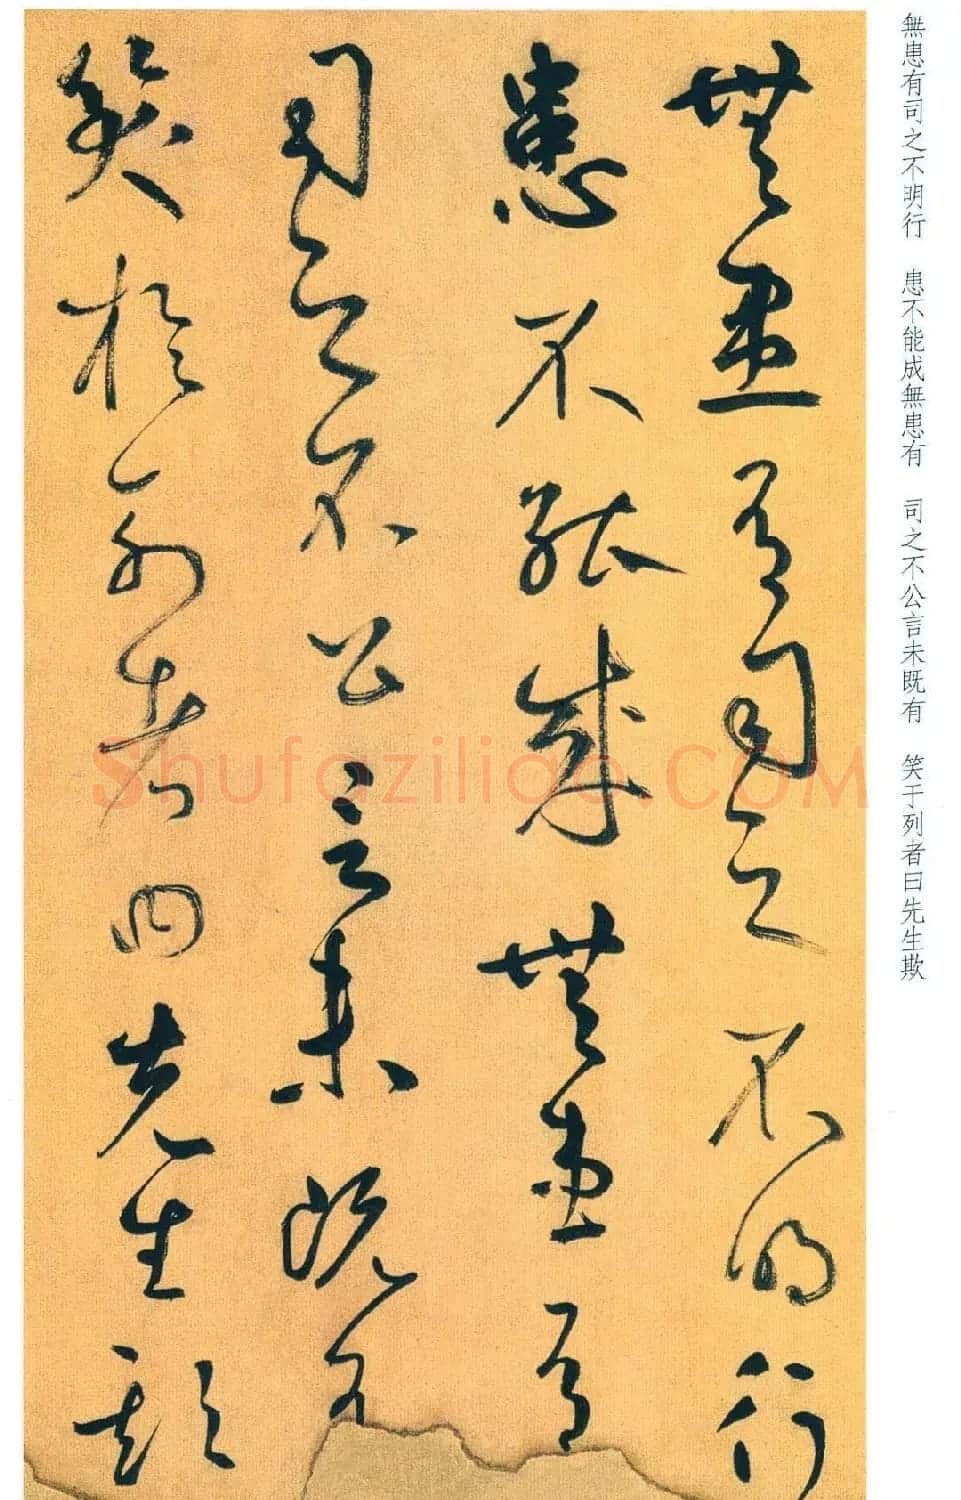 無患有司之不明行　患不能成無患有　司之不公言未既有　笑于列者曰先生欺
無患有司之不明行
患不能成無患有
司之不公言未既有
笑於列者曰先生欺
Shufaziliao.COM